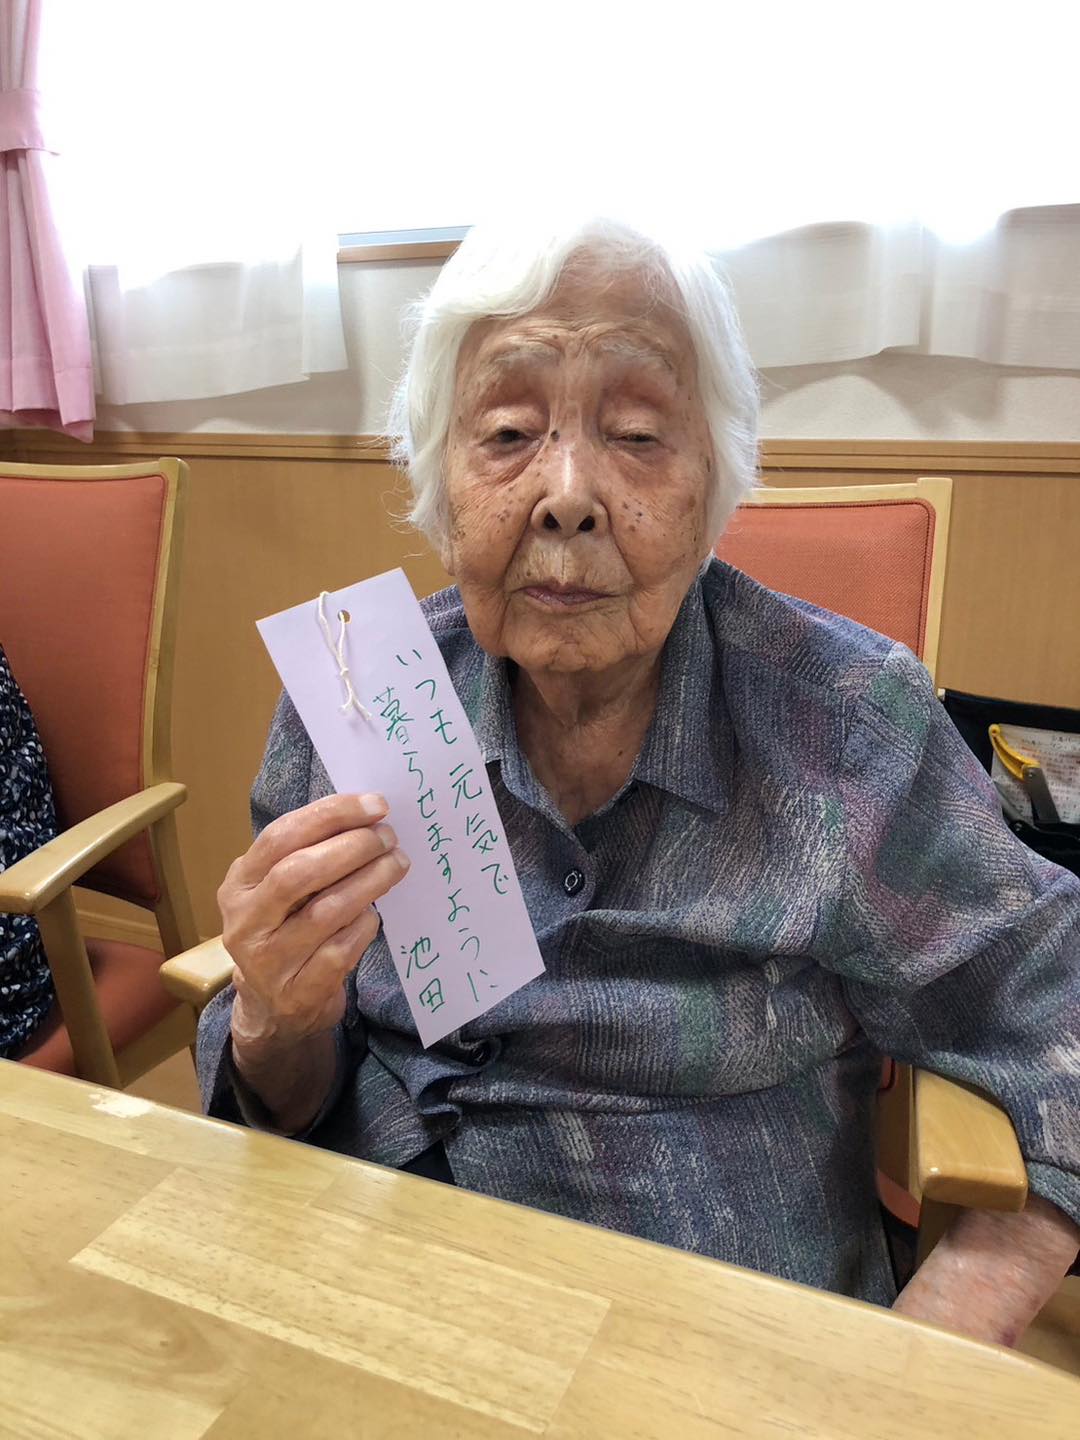 いつも元気で
暮らせますように
池田